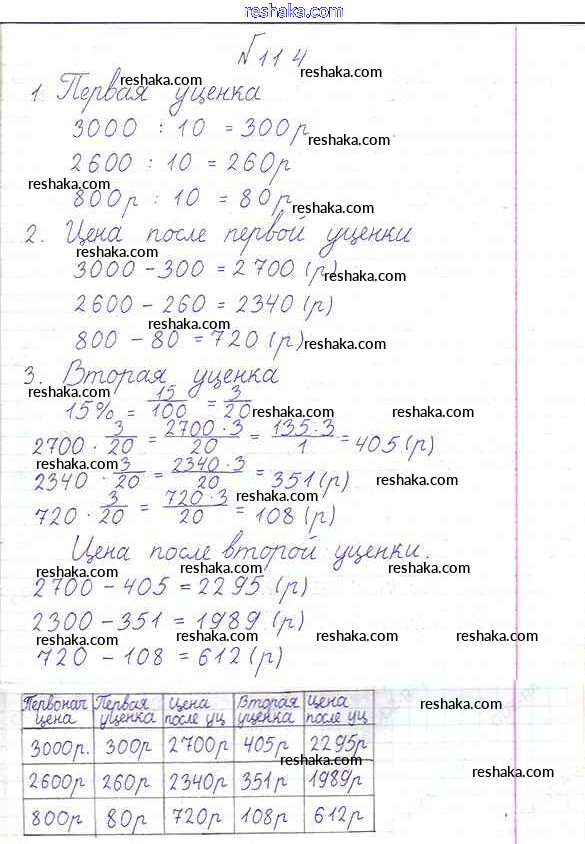 reshaka.com
№114
reshaka.com
reshaka.com
1. Первая уценка
reshaka.com
3000 : 10 = 300р
reshaka.com
2600 : 10 = 260р
reshaka.com
800р : 10 = 80р
reshaka.com
2. Цена после первой уценки
reshaka.com
3000 - 300 = 2700 (р)
reshaka.com
2600 - 260 = 2340 (р)
reshaka.com
800 - 80 = 720 (р)
reshaka.com
3. Вторая уценка
reshaka.com
15% = 15/100 = 3/20
reshaka.com
reshaka.com
2700 · 3/20 = 2700·3/20 = 135·3/1 = 405 (р)
reshaka.com
2340 · 3/20 = 2340·3/20 = 351 (р)
reshaka.com
reshaka.com
720 · 3/20 = 720·3/20 = 108 (р)
reshaka.com
Цена после второй уценки.
reshaka.com
reshaka.com
2700 - 405 = 2295 (р)
reshaka.com
2300 - 351 = 1989 (р)
reshaka.com
reshaka.com
720 - 108 = 612 (р)
reshaka.com
Первонач цена | Первая уценка | Цена после уц | Вторая уценка | Цена после уц
reshaka.com
3000р. | 300р | 2700р | 405р | 2295р
reshaka.com
2600р | 260р | 2340р | 351р | 1989р
reshaka.com
800р | 80р | 720р | 108р | 612р